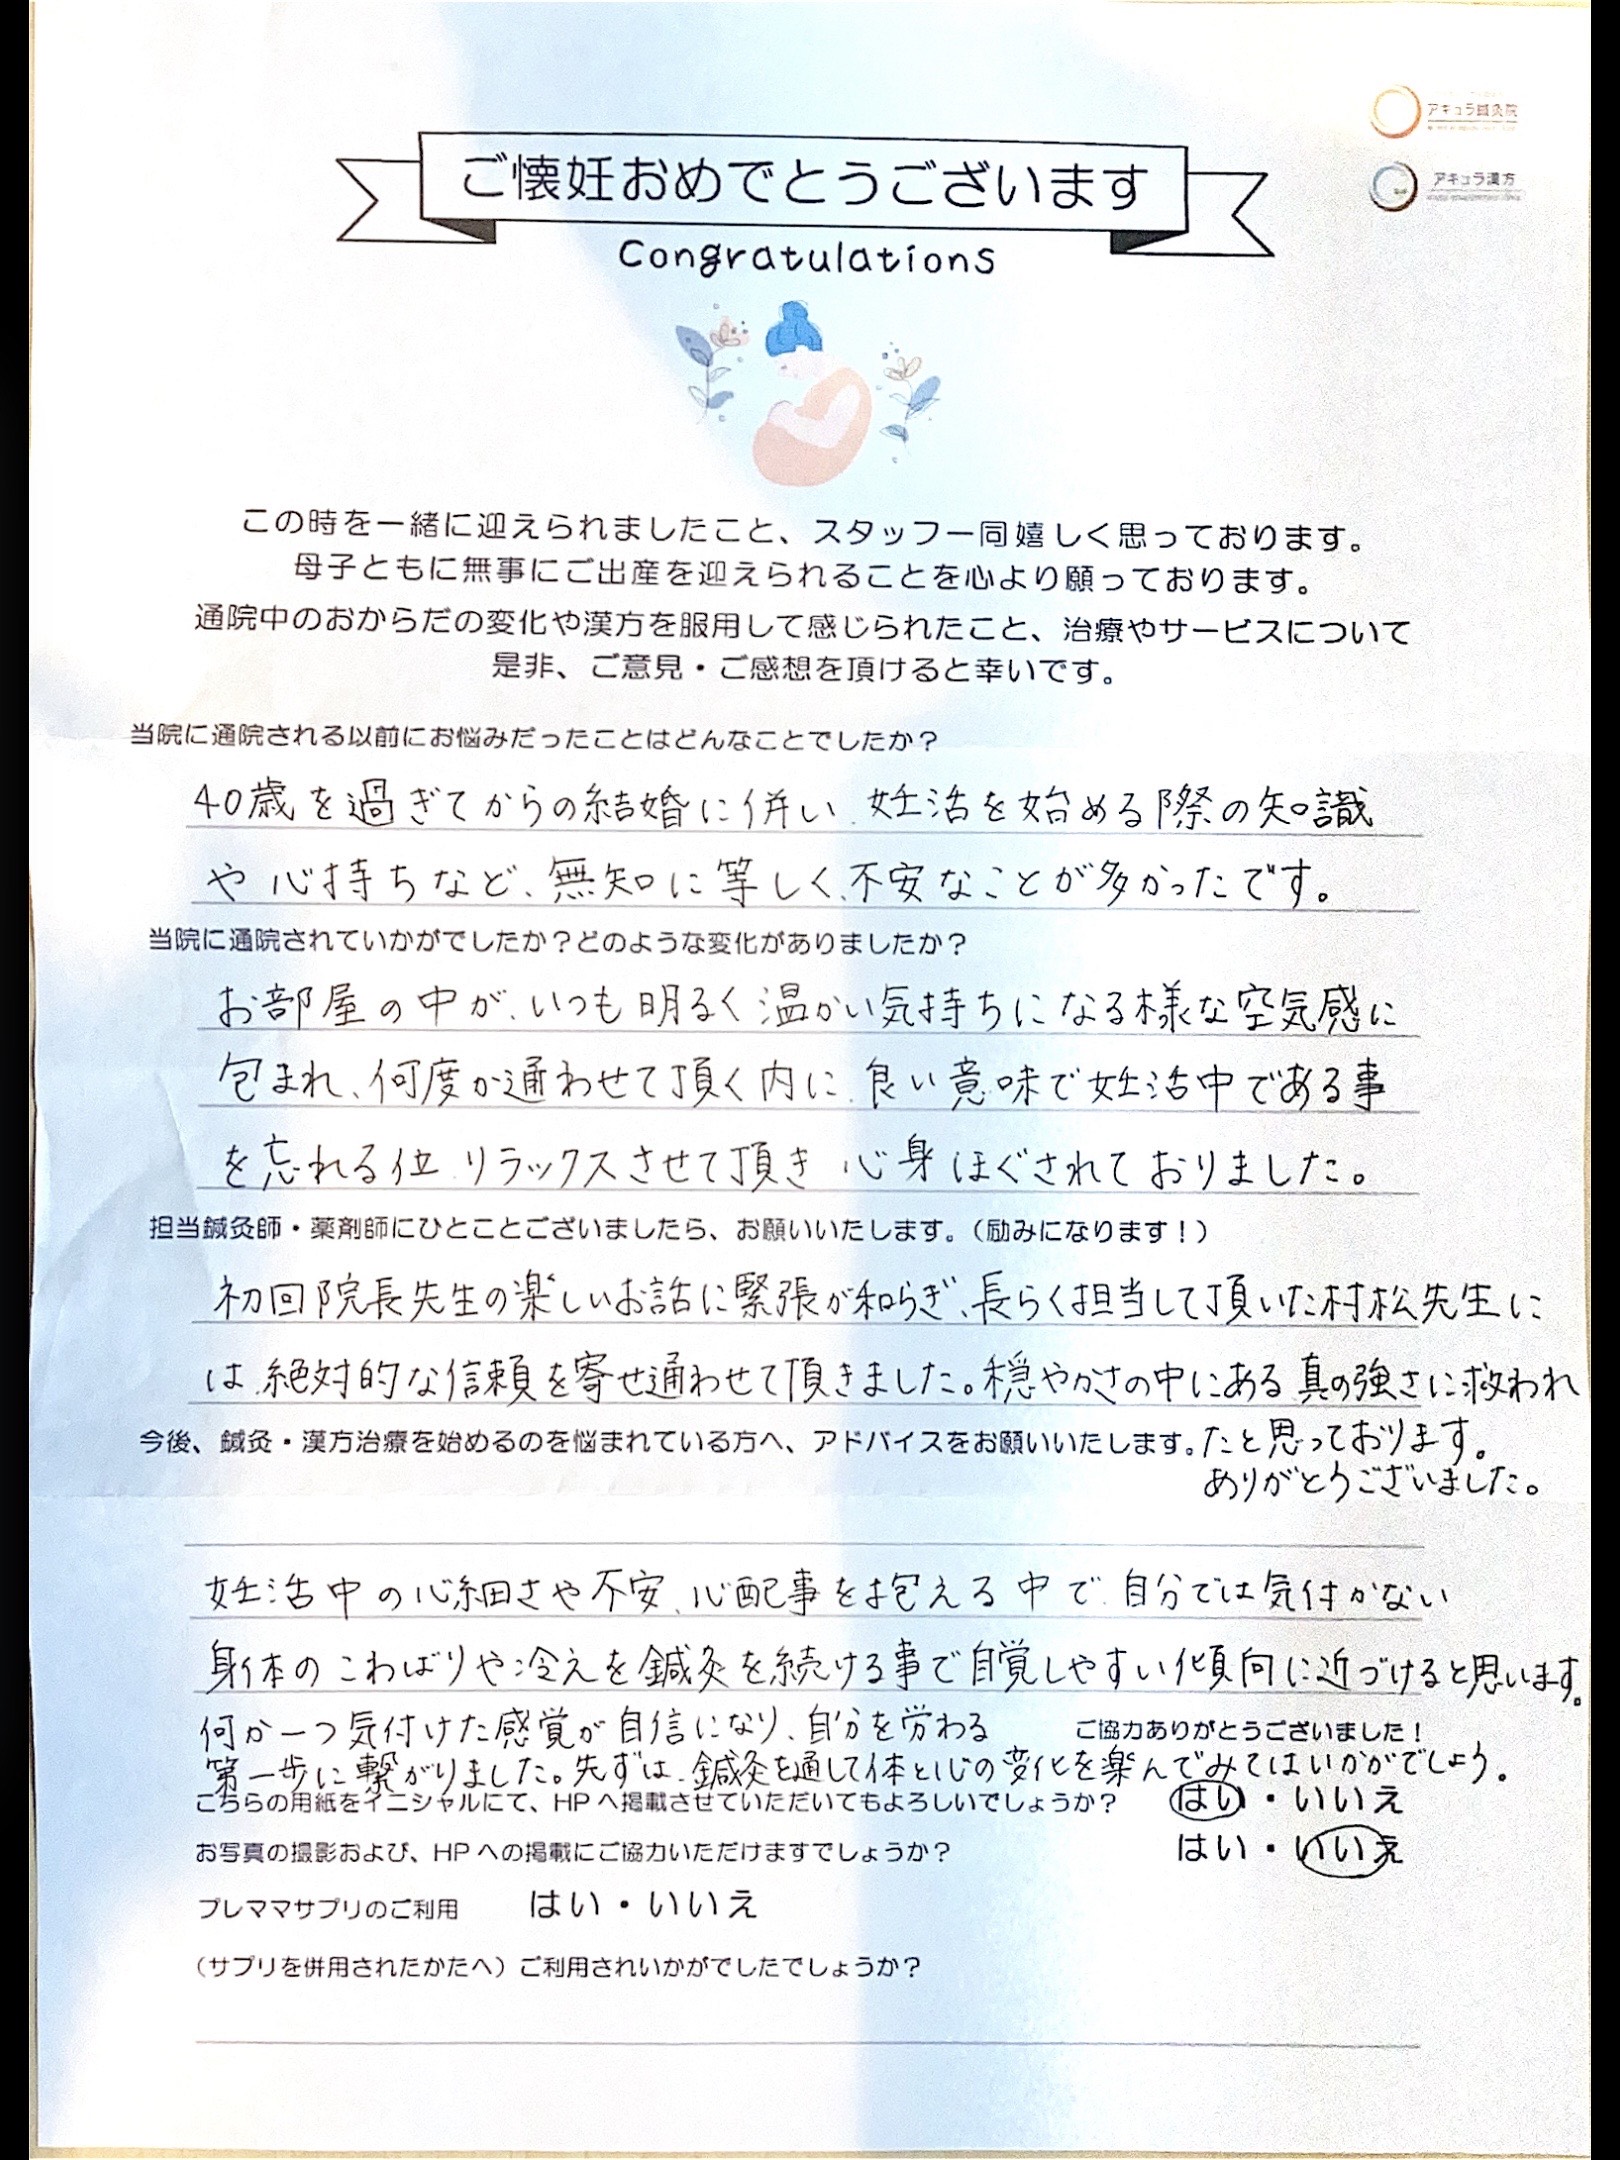 アキュラ鍼灸院
アキュラ漢方
ご懐妊おめでとうございます
Congratulations
この時を一緒に迎えられましたこと、スタッフ一同嬉しく思っております。
母子ともに無事にご出産を迎えられることを心より願っております。
通院中のおからだの変化や漢方を服用して感じられたこと、治療やサービスについて
是非、ご意見・ご感想を頂けると幸いです。
当院に通院される以前にお悩みだったことはどんなことでしたか？
40歳を過ぎてからの結婚に併い、妊活を始める際の知識
や心持ちなど、無知に等しく、不安なことが多かったです。
当院に通院されていかがでしたか？どのような変化がありましたか？
お部屋の中が、いつも明るく温かい気持ちになる様な空気感に
包まれ、何度か通わせて頂く内に、良い意味で妊活中である事
を忘れる位、リラックスさせて頂き 心身ほぐされておりました。
担当鍼灸師・薬剤師にひとことございましたら、お願いいたします。（励みになります！）
初回院長先生の楽しいお話に緊張が和らぎ、長らく担当して頂いた村松先生に
は、絶対的な信頼を寄せ通わせて頂きました。穏やかさの中にある真の強さに救われ
今後、鍼灸・漢方治療を始めるのを悩まれている方へ、アドバイスをお願いいたします。たと思っております。
ありがとうございました。
妊活中の心細さや不安、心配事を抱える中で、自分では気付かない
身体のこわばりや冷えを鍼灸を続ける事で自覚しやすい傾向に近づけると思います。
何か一つ気付けた感覚が自信になり、自分を労わる
ご協力ありがとうございました！
第一歩に繋がりました。先ずは、鍼灸を通して体と心の変化を楽んでみてはいかがでしょう。
こちらの用紙をイニシャルにて、HPへ掲載させていただいてもよろしいでしょうか？ はい・いいえ
お写真の撮影および、HPへの掲載にご協力いただけますでしょうか？ はい・いいえ
プレママサプリのご利用 はい・いいえ
（サプリを併用されたかたへ）ご利用されいかがでしたでしょうか？